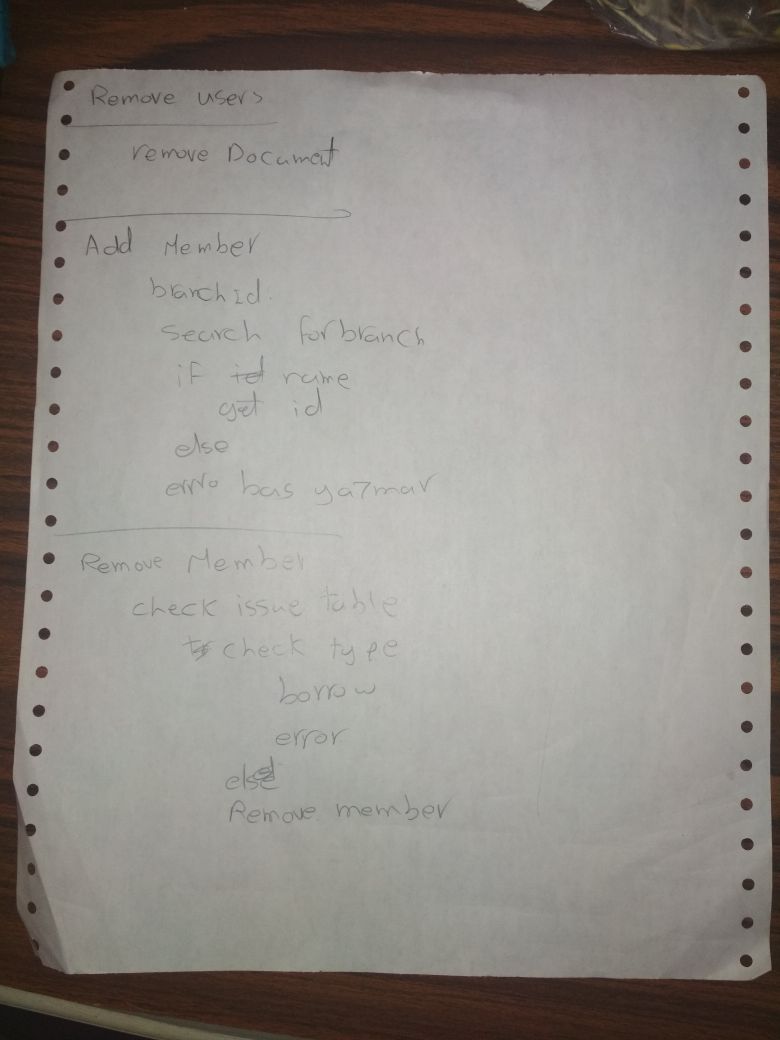 Remove users
remove Document
Add Member
branch id.
search for branch
if id name
get id
else
erro bas ya7mar
Remove Member
check issue table
check type
borrow
error
else
Remove member